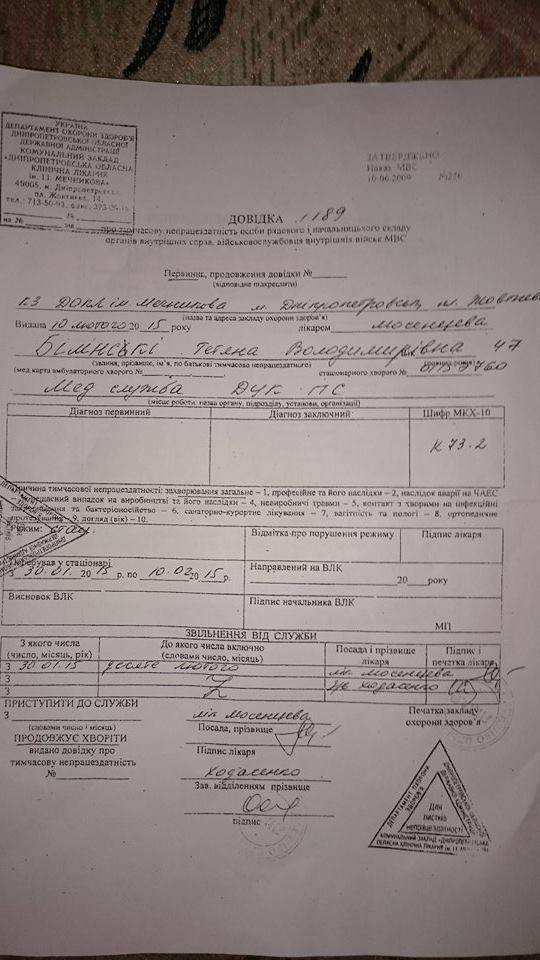 УКРАЇНА
ДЕПАРТАМЕНТ ОХОРОНИ ЗДОРОВ'Я
ДНІПРОПЕТРОВСЬКОЇ ОБЛАСНОЇ
ДЕРЖАВНОЇ АДМІНІСТРАЦІЇ
КОМУНАЛЬНИЙ ЗАКЛАД
«ДНІПРОПЕТРОВСЬКА ОБЛАСНА
КЛІНІЧНА ЛІКАРНЯ
ім. І.І. МЕЧНИКОВА»
49005, м. Дніпропетровськ,
пл. Жовтнева, 14,
тел.: 713-50-93, факс:
на № від
ЗАТВЕРДЖЕНО
Наказ МВС
10.06.2009 №256
ДОВІДКА 1189
про тимчасову непрацездатність особи рядового і начальницького складу
органів внутрішніх справ, військовослужбовця внутрішніх військ МВС
Первинна, продовження довідки №
(відповідне підкреслити)
КЗ ДОКЛ ім. Мечникова м. Дніпропетровськ, пл. Жовтнева
(назва та адреса закладу охорони здоров'я)
Видана 10 лютого 2015 року лікарем Мосенцева
Тетяна Володимирівна 47
(звання, прізвище, ім'я, по батькові тимчасово непрацездатного)
(мед карта амбулаторного хворого № стаціонарного хворого №
Мед служба ДУК ПС
(місце роботи: назва органу, підрозділу, установи, організації)
Діагноз первинний Діагноз заключний Шифр МКХ-10
К 73.2
Причина тимчасової непрацездатності: захворювання загальне – 1, професійне та його наслідки – 2, наслідок аварії на ЧАЕС
– нещасний випадок на виробництві та його наслідки – 4, невиробничі травми – 5, контакт з хворими на інфекційні
захворювання та бактеріоносійство – 6, санаторно-курортне лікування – 7, вагітність та пологи – 8, ортопедичне
протезування – 9, догляд (вік) – 10.
Режим: стац. Відмітка про порушення режиму Підпис лікаря
Перебував у стаціонарі
З 30.01. 2015 р. по 10.02 2015 р.
Направлений на ВЛК
20 року
Висновок ВЛК Підпис начальника ВЛК
МП
ЗВІЛЬНЕННЯ ВІД СЛУЖБИ
З якого числа
(число, місяць, рік)
До якого числа включно
(словами число, місяць)
Посада і прізвище
лікаря
Підпис і
печатка лікаря
З 30.01.15 десяте лютого лік. Мосенцева
З Z з/в Ходасенко
З
ПРИСТУПИТИ ДО СЛУЖБИ
З
(словами число і місяць)
ПРОДОВЖУЄ ХВОРІТИ
видано довідку про
тимчасову непрацездатність
№
лік. Мосенцева
Посада, прізвище
Підпис лікаря
Ходасенко
Зав. відділенням прізвище
підпис
Печатка закладу
охорони здоров'я
ДЕПАРТАМЕНТ ОХОРОНИ ЗДОРОВ'Я
ДНІПРОПЕТРОВСЬКОЇ ОБЛАСНОЇ ДЕРЖАВНОЇ АДМІНІСТРАЦІЇ
Для
листків
непрацездатності
КОМУНАЛЬНИЙ ЗАКЛАД «ДНІПРОПЕТРОВСЬКА
ОБЛАСНА КЛІНІЧНА ЛІКАРНЯ ім. І.І.